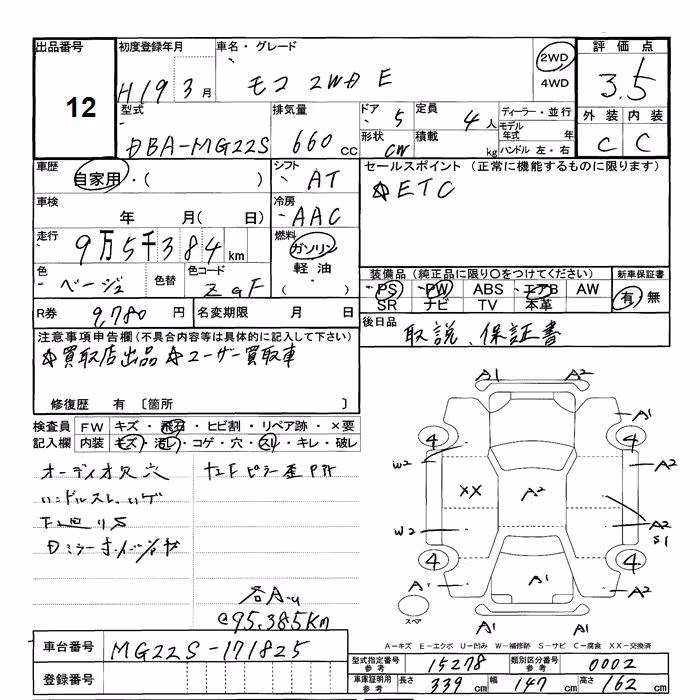 出品番号
12
初度登録年月
H19 3月
車名・グレード
モコ 2WD E
2WD
4WD
評価点
3.5
外装 内装
C C
型式
DBA-MG22S
排気量
660 cc
ドア
5
定員
4人
形状
CW
積載
kg
ディーラー・並行
モデル年式 年
ハンドル 左・右
車歴
自家用・( )
シフト
AT
セールスポイント (正常に機能するものに限ります)
☆ETC
車検
年 月( 日)
冷房
AAC
走行
9万5千384km
燃料
ガソリン
軽油
・( )
色
ベージュ
色替
色コード
ZGF
装備品 (純正品に限り○をつけてください)
PS PW ABS エアB AW
SR ナビ TV 本革
新車保証書
有・無
R券
9,780円
名変期限 月 日
後日品
取説、保証書
注意事項申告欄(不具合内容等は具体的に記入して下さい)
☆買取店出品 ☆ユーザー買取車
修復歴 有 〔箇所 〕
検査員記入欄
FW キズ・飛石・ヒビ割・リペア跡・×要
内装 キズ・汚レ・コゲ・穴・スレ・キレ・破レ
オーディオ穴
@95.385km
A1 A2
A1
4 4
W2
A2
XX
A2
W2
A2
S1
4 4
A1
A1
A2
スペア
A1 A1
A-キズ E-エクボ U-凹み W-補修跡 S-サビ C-腐食 XX-交換済
車台番号
MG22S-171825
登録番号
型式指定番号 参考
15278
類別区分番号 参考
0002
車庫証明用 参考
長さ 339cm 幅 147cm 高さ 162cm